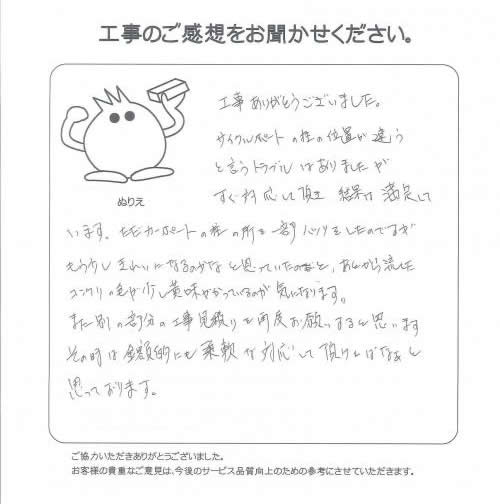 工事のご感想をお聞かせください。
工事ありがとうございました。
サイクルポートの柱の位置が違う
と言うトラブルはありましたが
すぐ対応して頂き 結果は満足して
ぬりえ
います。ただカーポートの柱の所を一部ハツリをしたのですが
もう少しきれいになるのかなと思っていたのと、あとから流した
コンクリの色が少し黄味がかっているのが気になります。
また別の部分の工事見積りを再度お願いすると思います
その時は金額的にも柔軟な対応して頂ければなあと
思っております。
ご協力いただきありがとうございました。
お客様の貴重なご意見は、今後のサービス品質向上のための参考にさせていただきます。